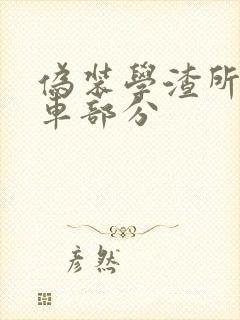 偽裝學渣所
車部分
彥然